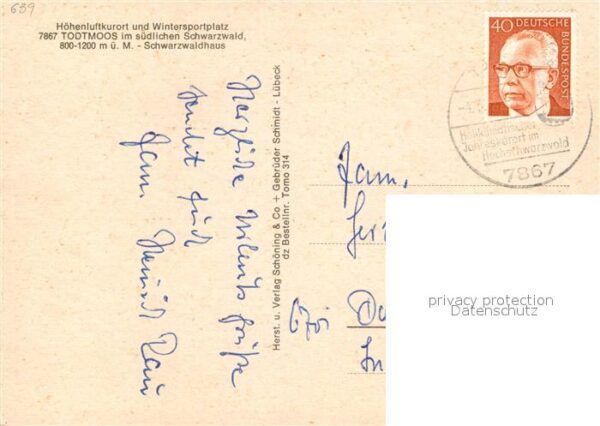 639
Höhenluftkurort und Wintersportplatz
7867 TODTMOOS im südlichen Schwarzwald,
800-1200 m ü. M. - Schwarzwaldhaus
Herzliche Urlaubsgrüße
sendet Euch
Fam.
Herst. u. Verlag Schöning & Co + Gebrüder Schmidt - Lübeck
dz Bestellnr. Tomo 314
40 DEUTSCHE BUNDESPOST
Heilklimatischer
Jahreskurort im
Hochschwarzwald
7867
Fam.
privacy protection
Datenschutz